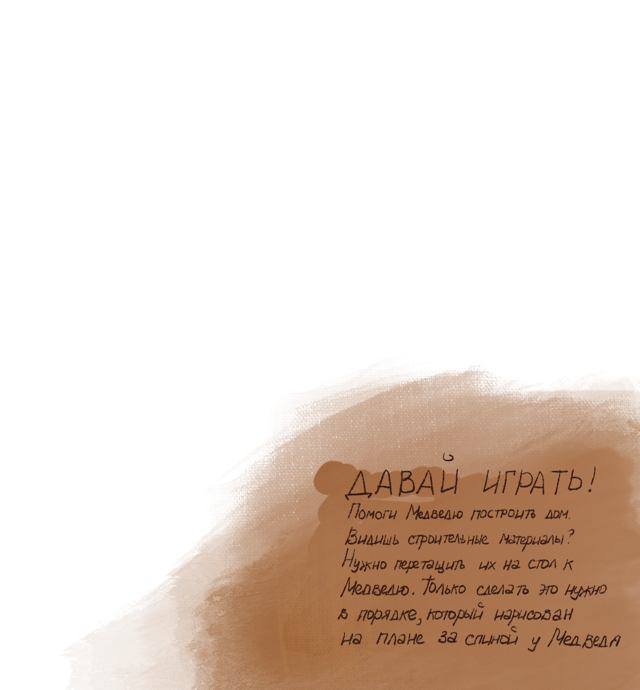 ДАВАЙ ИГРАТЬ!
Помоги Медведю построить дом.
Видишь строительные материалы?
Нужно перетащить их на стол к
Медведю. Только сделать это нужно
в порядке, который нарисован
на плане за спиной у Медведя